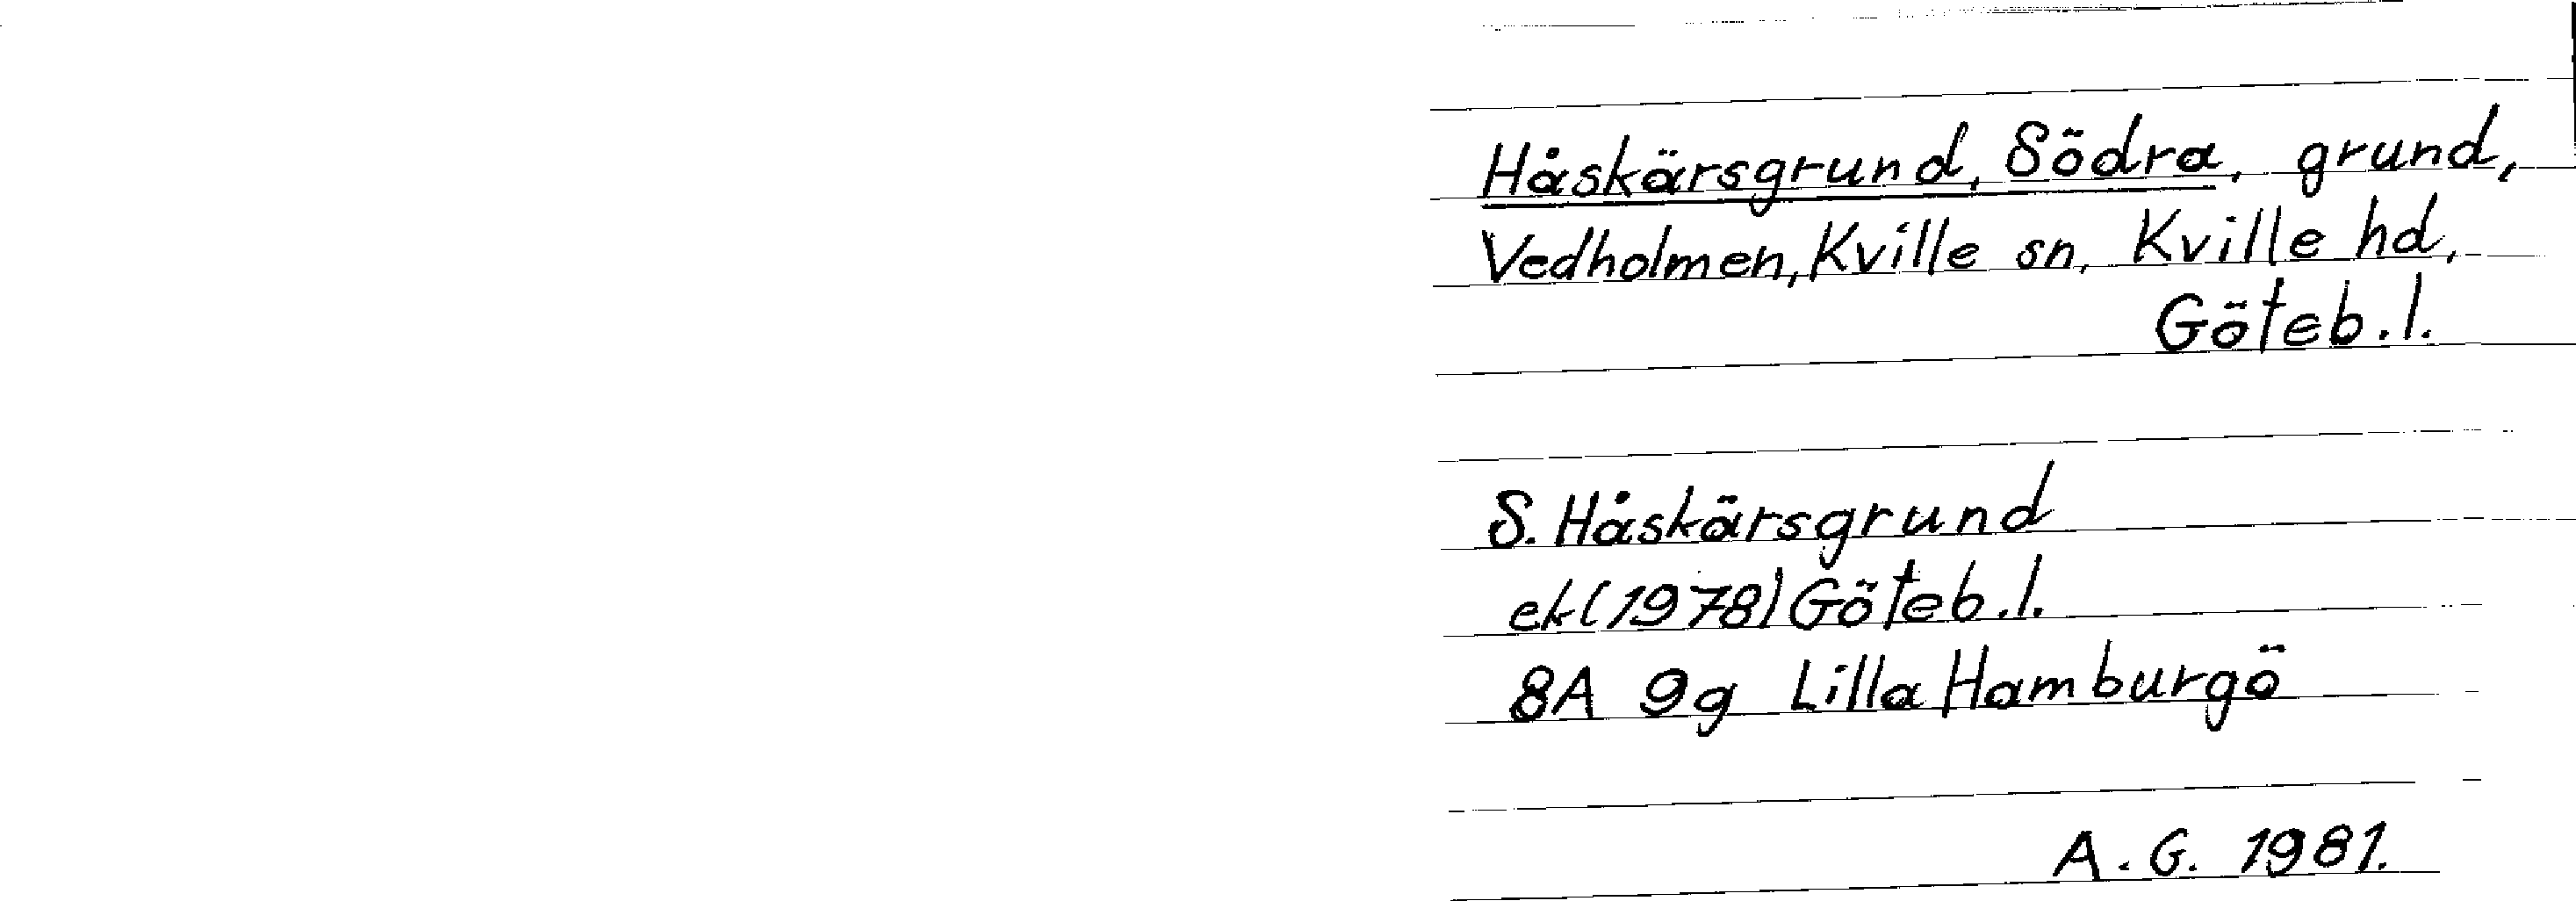 Håskärsgrund, Södra, grund,
Vedholmen, Kville sn, Kville hd,
Göteb.l.
S. Håskärsgrund
ek(1978) Göteb.l.
8A 9g Lilla Hamburgö
A.G. 1981.